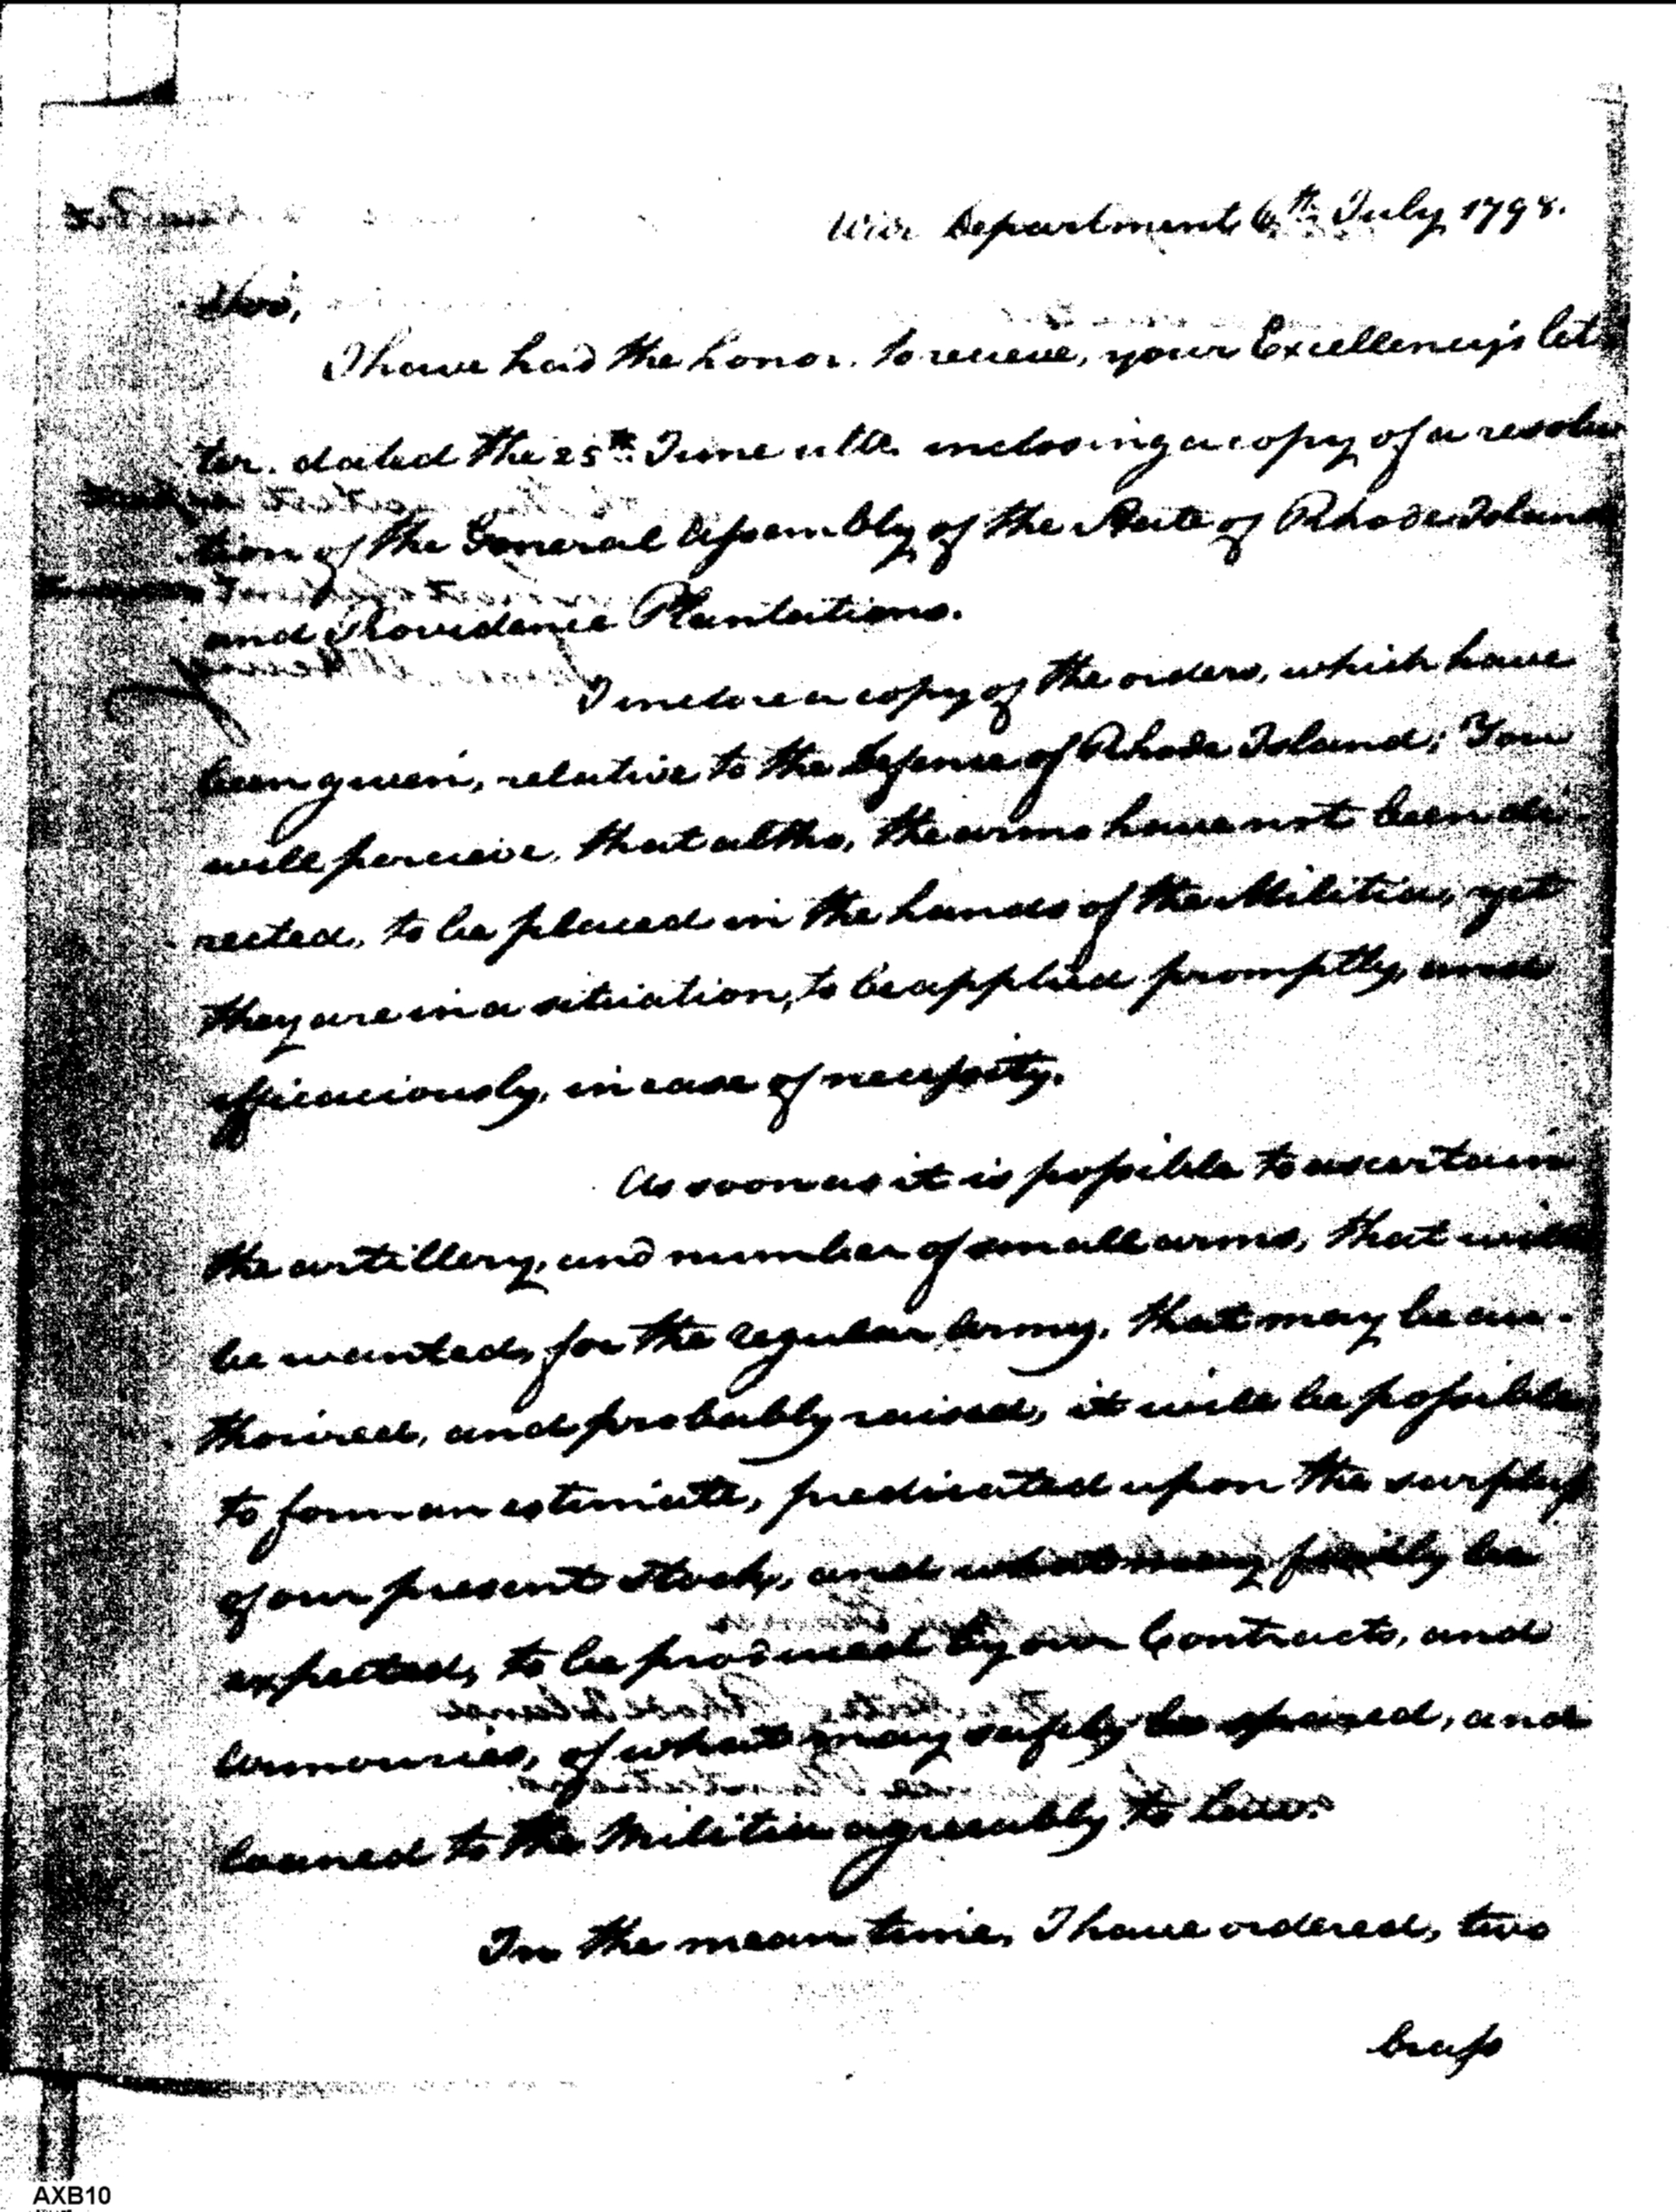 War Department 6th July 1798.
Sir,
I have had the honor. to receive, your Excellency's let
ter. dated the 25th June ulto. inclosing a copy of a resolu
tion of the General Assembly of the State of Rhode Island
and Providence Plantations.
I inclose a copy of the orders, which have
been given, relative to the Defense of Rhode Island; You
will perceive. that altho, the arms have not been di-
rected, to be placed in the hands of the Militia, yet
they are in a situation, to be applied promptly, and
efficaciously, in case of necessity.
As soon as it is possible to ascertain
the artillery, and number of small arms, that will
be wanted, for the regular army, that may be au-
thorised, and probably raised, it will be possible
to form an estimate, predicated upon the surplus
of our present stock, and what may be
expected, to be produced by our Contracts, and
armouries, of what may safely be spared, and
loaned to the Militia agreeably to law.
In the mean time, I have ordered, two
brass
AXB10